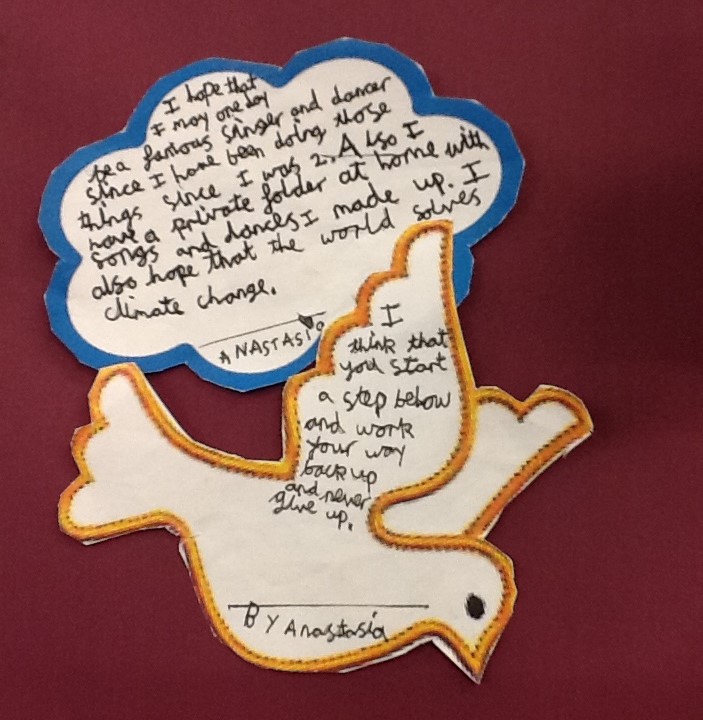 I hope that
I may one day
be a famous singer and dancer
since I have been doing those
things since I was 2. Also I
have a private folder at home with
songs and dances I made up. I
also hope that the world solves
climate change.
ANASTASIA
I
think that
you start
a step below
and work
your way
back up
and never
give up.
By Anastasia